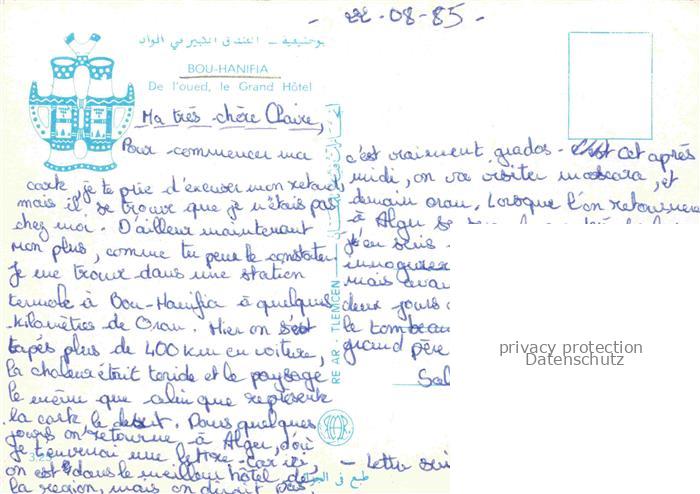 - 22-08-85 -
بوحنيفية - الفندق الكبير في الواد
BOU-HANIFIA
De l'oued, le Grand Hôtel
Ma très chère Claire,
Pour commencer ma
carte, je te prie d'excuser mon retard
mais il se trouve que je n'étais pas
chez moi. D'ailleur maintenant
non plus, comme tu peux le constater
Je me trouve dans une station
termale à Bou-Hanifia à quelques
kilomètres de Oran. Hier on s'est
tapés plus de 400 km en voiture,
la chaleur était toride et le paysage
le même que celui que représente
la carte le desert. Dans quelques
jours on retourne à Alger, d'où
je t'enverrai une lettre car ici,
on est dans le meilleur hôtel de
la région, mais on dirait pas.
c'est vraiment grados - Cet après
midi, on va visiter mascara, et
demain oran. Lorsque l'on retournera
à Alger se
j'en suis
mais avan
deux jours
le tombeau
grand père
Sal
- Lettre sui
RE AR. - TLEMCEN
323
طبع في
privacy protection
Datenschutz